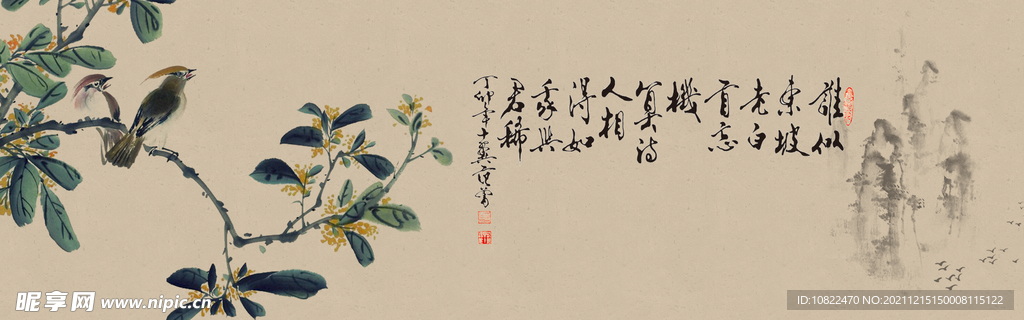 誰似
東坡
老白
首忘
機
算詩
人相
得如
我與
君稀
丁卯年十翼范曾
昵享网 www.nipic.cn
ID:10822470 NO:20211215150008115122